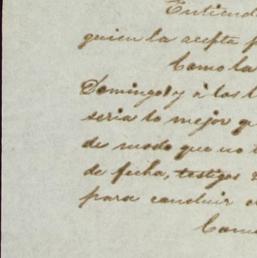 Entiendo
quien la acepta p
Como la
Domingo, y á los l
seria lo mejor q
de modo que no t
de fecha, testigos
para concluir
Como